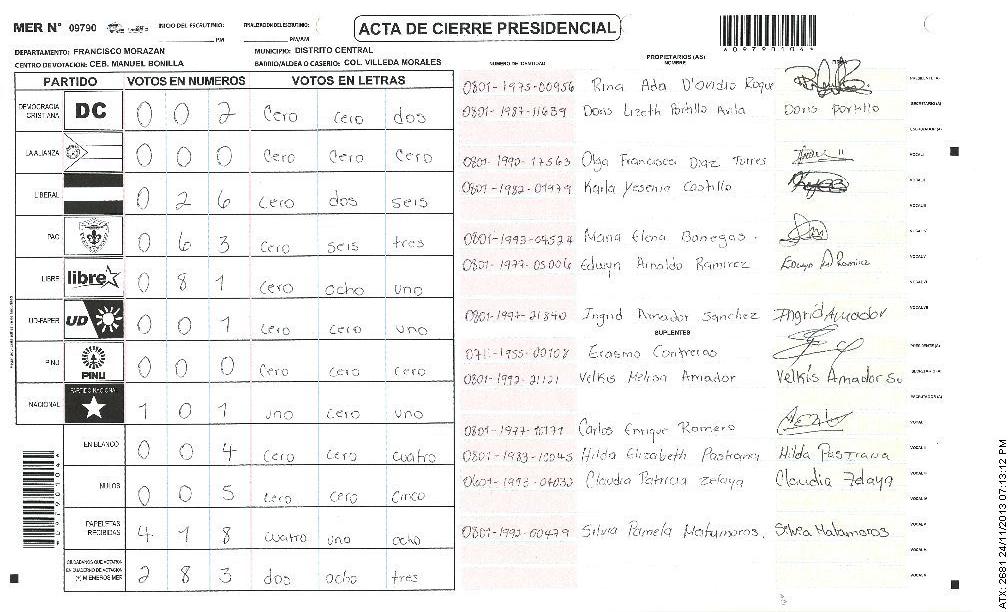 MER N° 09790 INICIO DEL ESCRUTINIO: PM FINALIZACION DEL ESCRUTINIO: PM/AM
ACTA DE CIERRE PRESIDENCIAL
DEPARTAMENTO: FRANCISCO MORAZAN MUNICIPIO: DISTRITO CENTRAL
CENTRO DE VOTACION: CEB. MANUEL BONILLA BARRIO/ALDEA O CASERIO: COL. VILLEDA MORALES
PARTIDO VOTOS EN NUMEROS VOTOS EN LETRAS
DEMOCRACIA CRISTIANA DC 0 0 2 cero cero dos
LA ALIANZA 0 0 0 cero cero cero
LIBERAL 0 2 6 cero dos seis
PAC 0 6 3 cero seis tres
LIBRE libre 0 8 1 cero ocho uno
UD-FAPER UD 0 0 1 cero cero uno
PINU PINU 0 0 0 cero cero cero
NACIONAL PARTIDO NACIONAL 1 0 1 uno cero uno
EN BLANCO 0 0 4 cero cero cuatro
NULOS 0 0 5 cero cero cinco
PAPELETAS RECIBIDAS 4 1 8 cuatro uno ocho
CIUDADANOS QUE VOTARON EN CUADERNO DE VOTACION (+) MIEMBROS MER 2 8 3 dos ocho tres
NUMERO DE IDENTIDAD PROPIETARIOS (AS) NOMBRE
0801-1975-00956 Rina Ada D'ondio Roque PRESIDENTE (A)
0801-1987-11639 Doris Lizeth Portillo Avila Doris Portillo SECRETARIO (A)
ESCRUTADOR (A)
0801-1990-17563 Olga Francisca Diaz Torres VOCAL I
0801-1982-01979 Karla Yesenia Castillo VOCAL II
VOCAL III
0801-1993-04524 Maria Elena Banegas. VOCAL IV
0801-1977-05006 Edwyn Arnoldo Ramirez Edwyn A Ramirez VOCAL V
VOCAL VI
0801-1997-21840 Ingrid Amador Sanchez Ingrid Amador VOCAL VII
SUPLENTES
Erasmo Contreras PRESIDENTE (A)
0801-1992-21121 Velkis Amador SECRETARIO (A)
ESCRUTADOR (A)
Carlos Enrique Romero VOCAL I
0801-1983-10045 Hilda Elizabeth Pastrana Hilda Pastrana VOCAL II
Claudia Patricia Zelaya Claudia Zelaya
VOCAL IV
0801-1992-00479 Silvia Pamela Matamoros. Silvia Matamoros
ATX: 2681 24/11/2013 07:13:12 PM